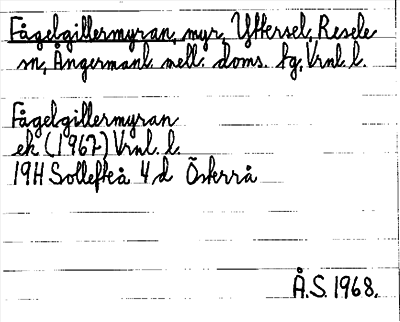 Fågelgillermyran, myr, Yttersel, Resele
sn, Ångermanl. mell. doms. fg, Vrnl. l.
Fågelgillermyran
ek (1967) Vrnl. l.
19H Sollefteå 4 d Österrå
Å.S. 1968.